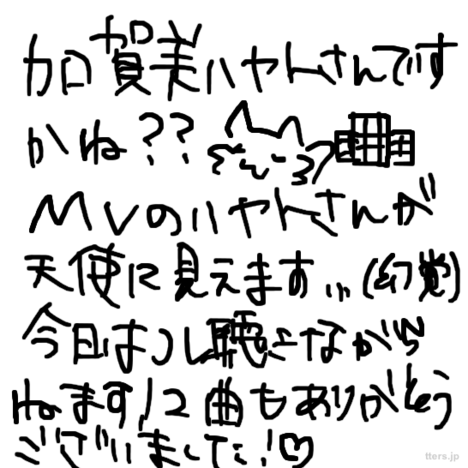 加賀美ハヤトさんです
かね??
MVのハヤトさんが
天使に見えます…(幻覚)
今日はコレ聴きながら
ねます!2曲もありがとう
ございました!♡
tters.jp